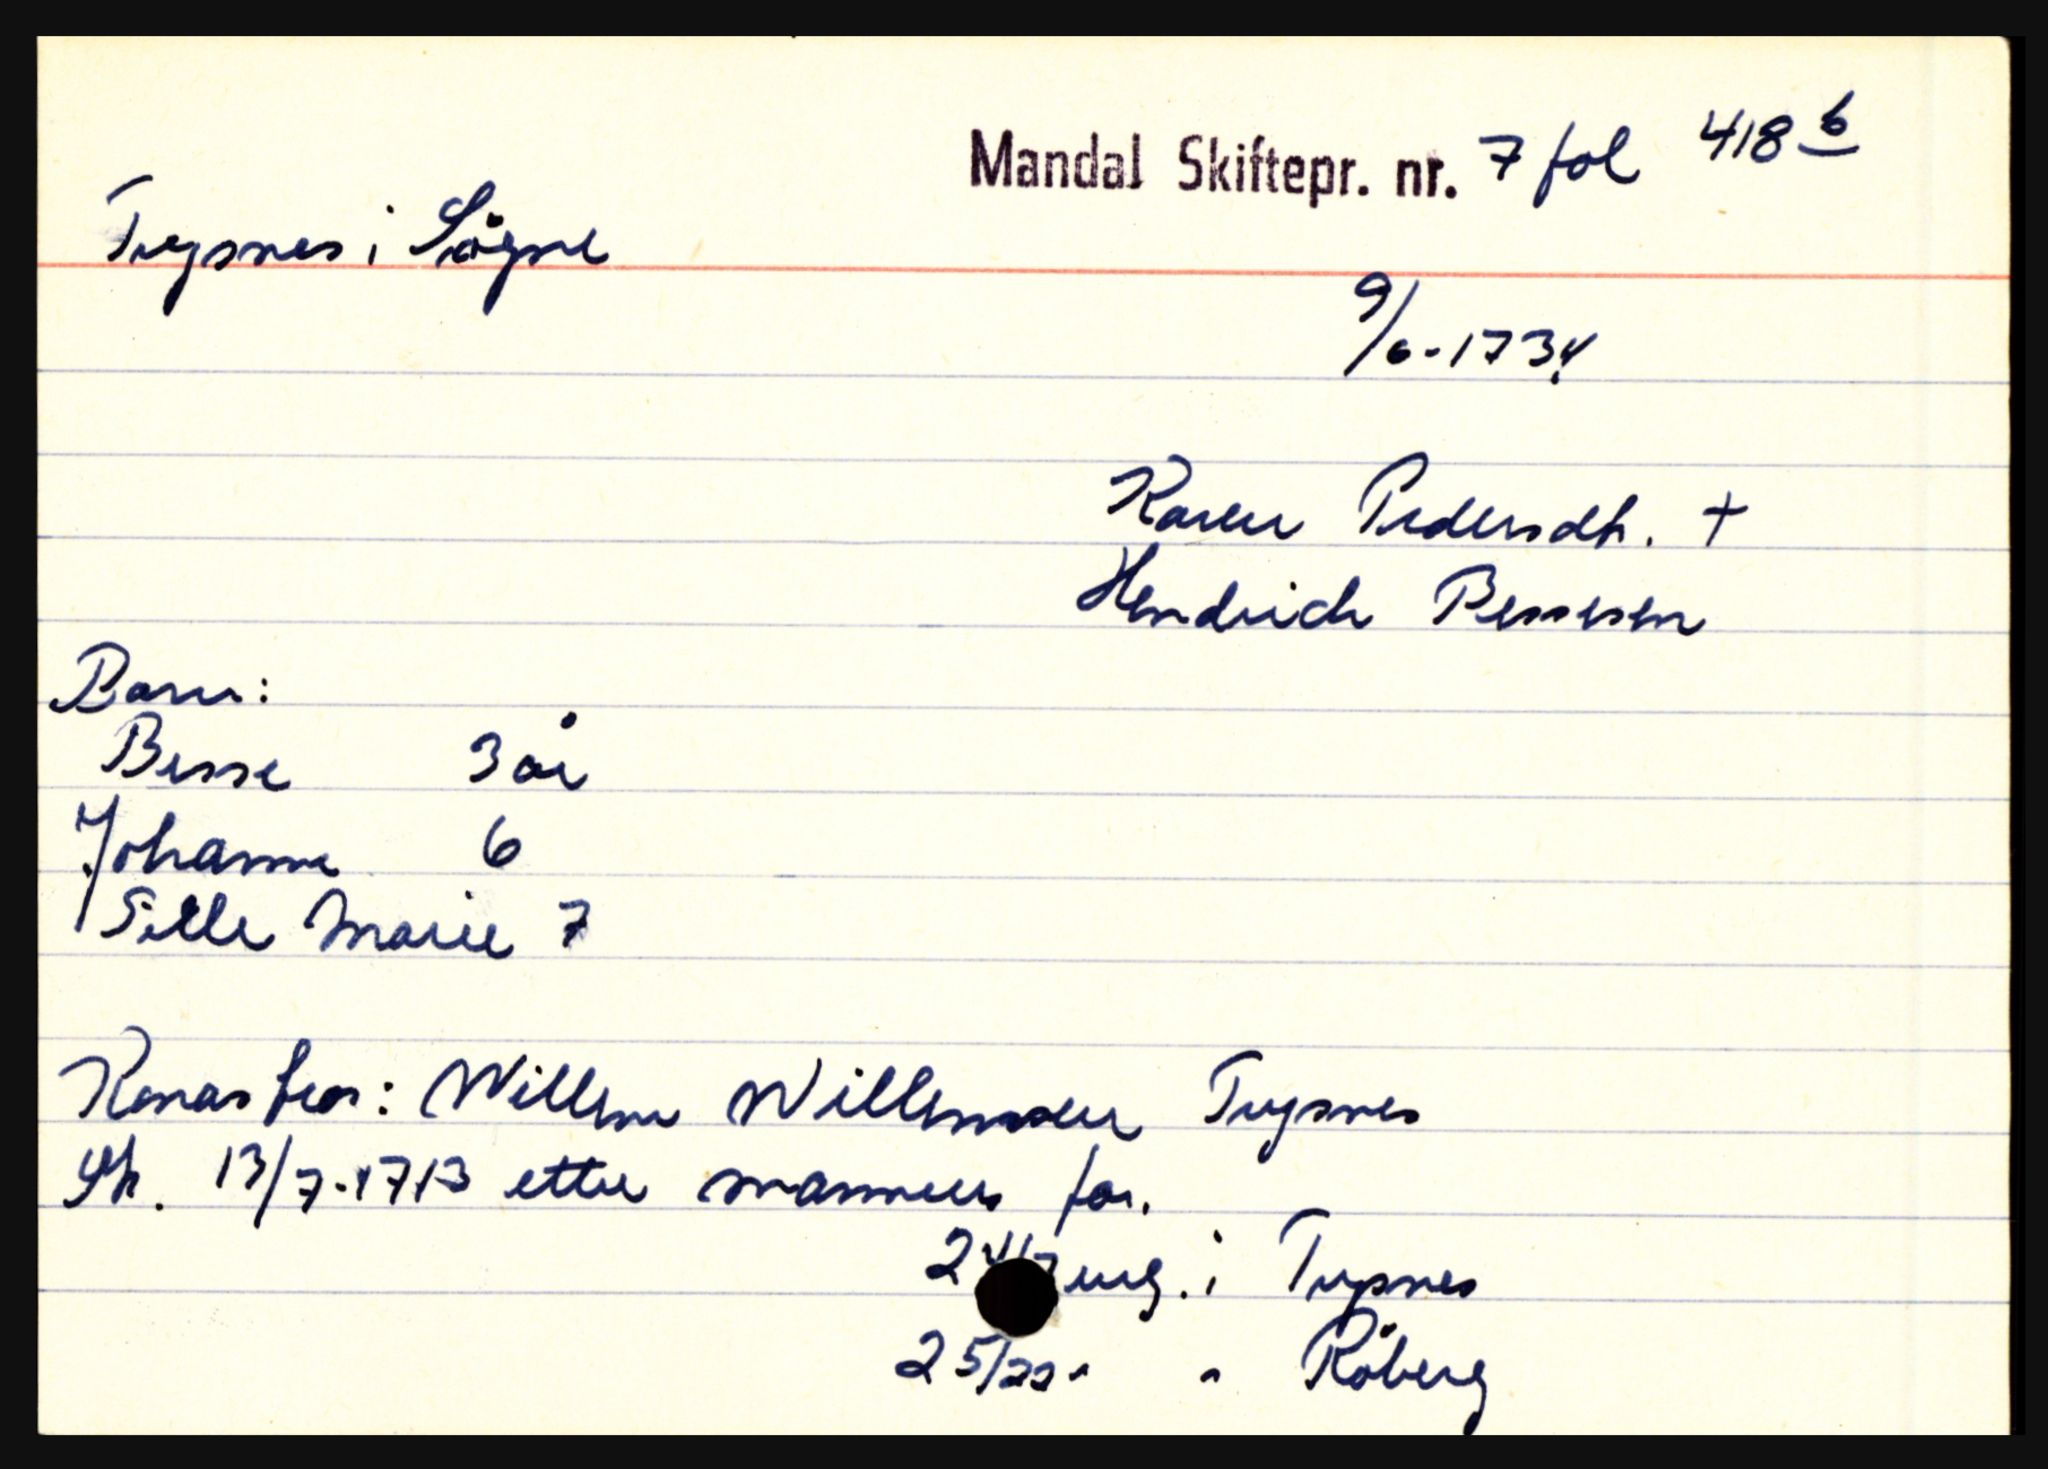 Mandal Skiftepr. nr. 7 fol 418 b
Trysnes i Søgne
9/6-1734
Karen Pedersdtr. +
Hendrich Bessesen
Barn:
Besse 3 år
Johanne 6
Sille Marie 7
Konas bror: Willem Willemsen Trysnes
Sk. 13/7-1713 etter mannens far.
eng. i Trysnes
25/22 " " Röberg